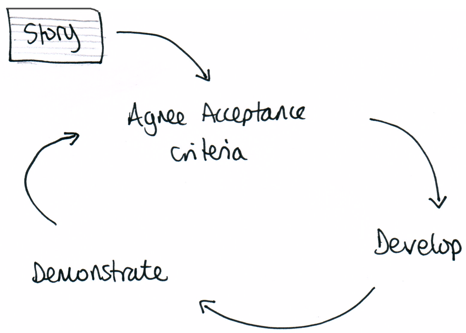 Story
Agree Acceptance
Criteria
Develop
Demonstrate